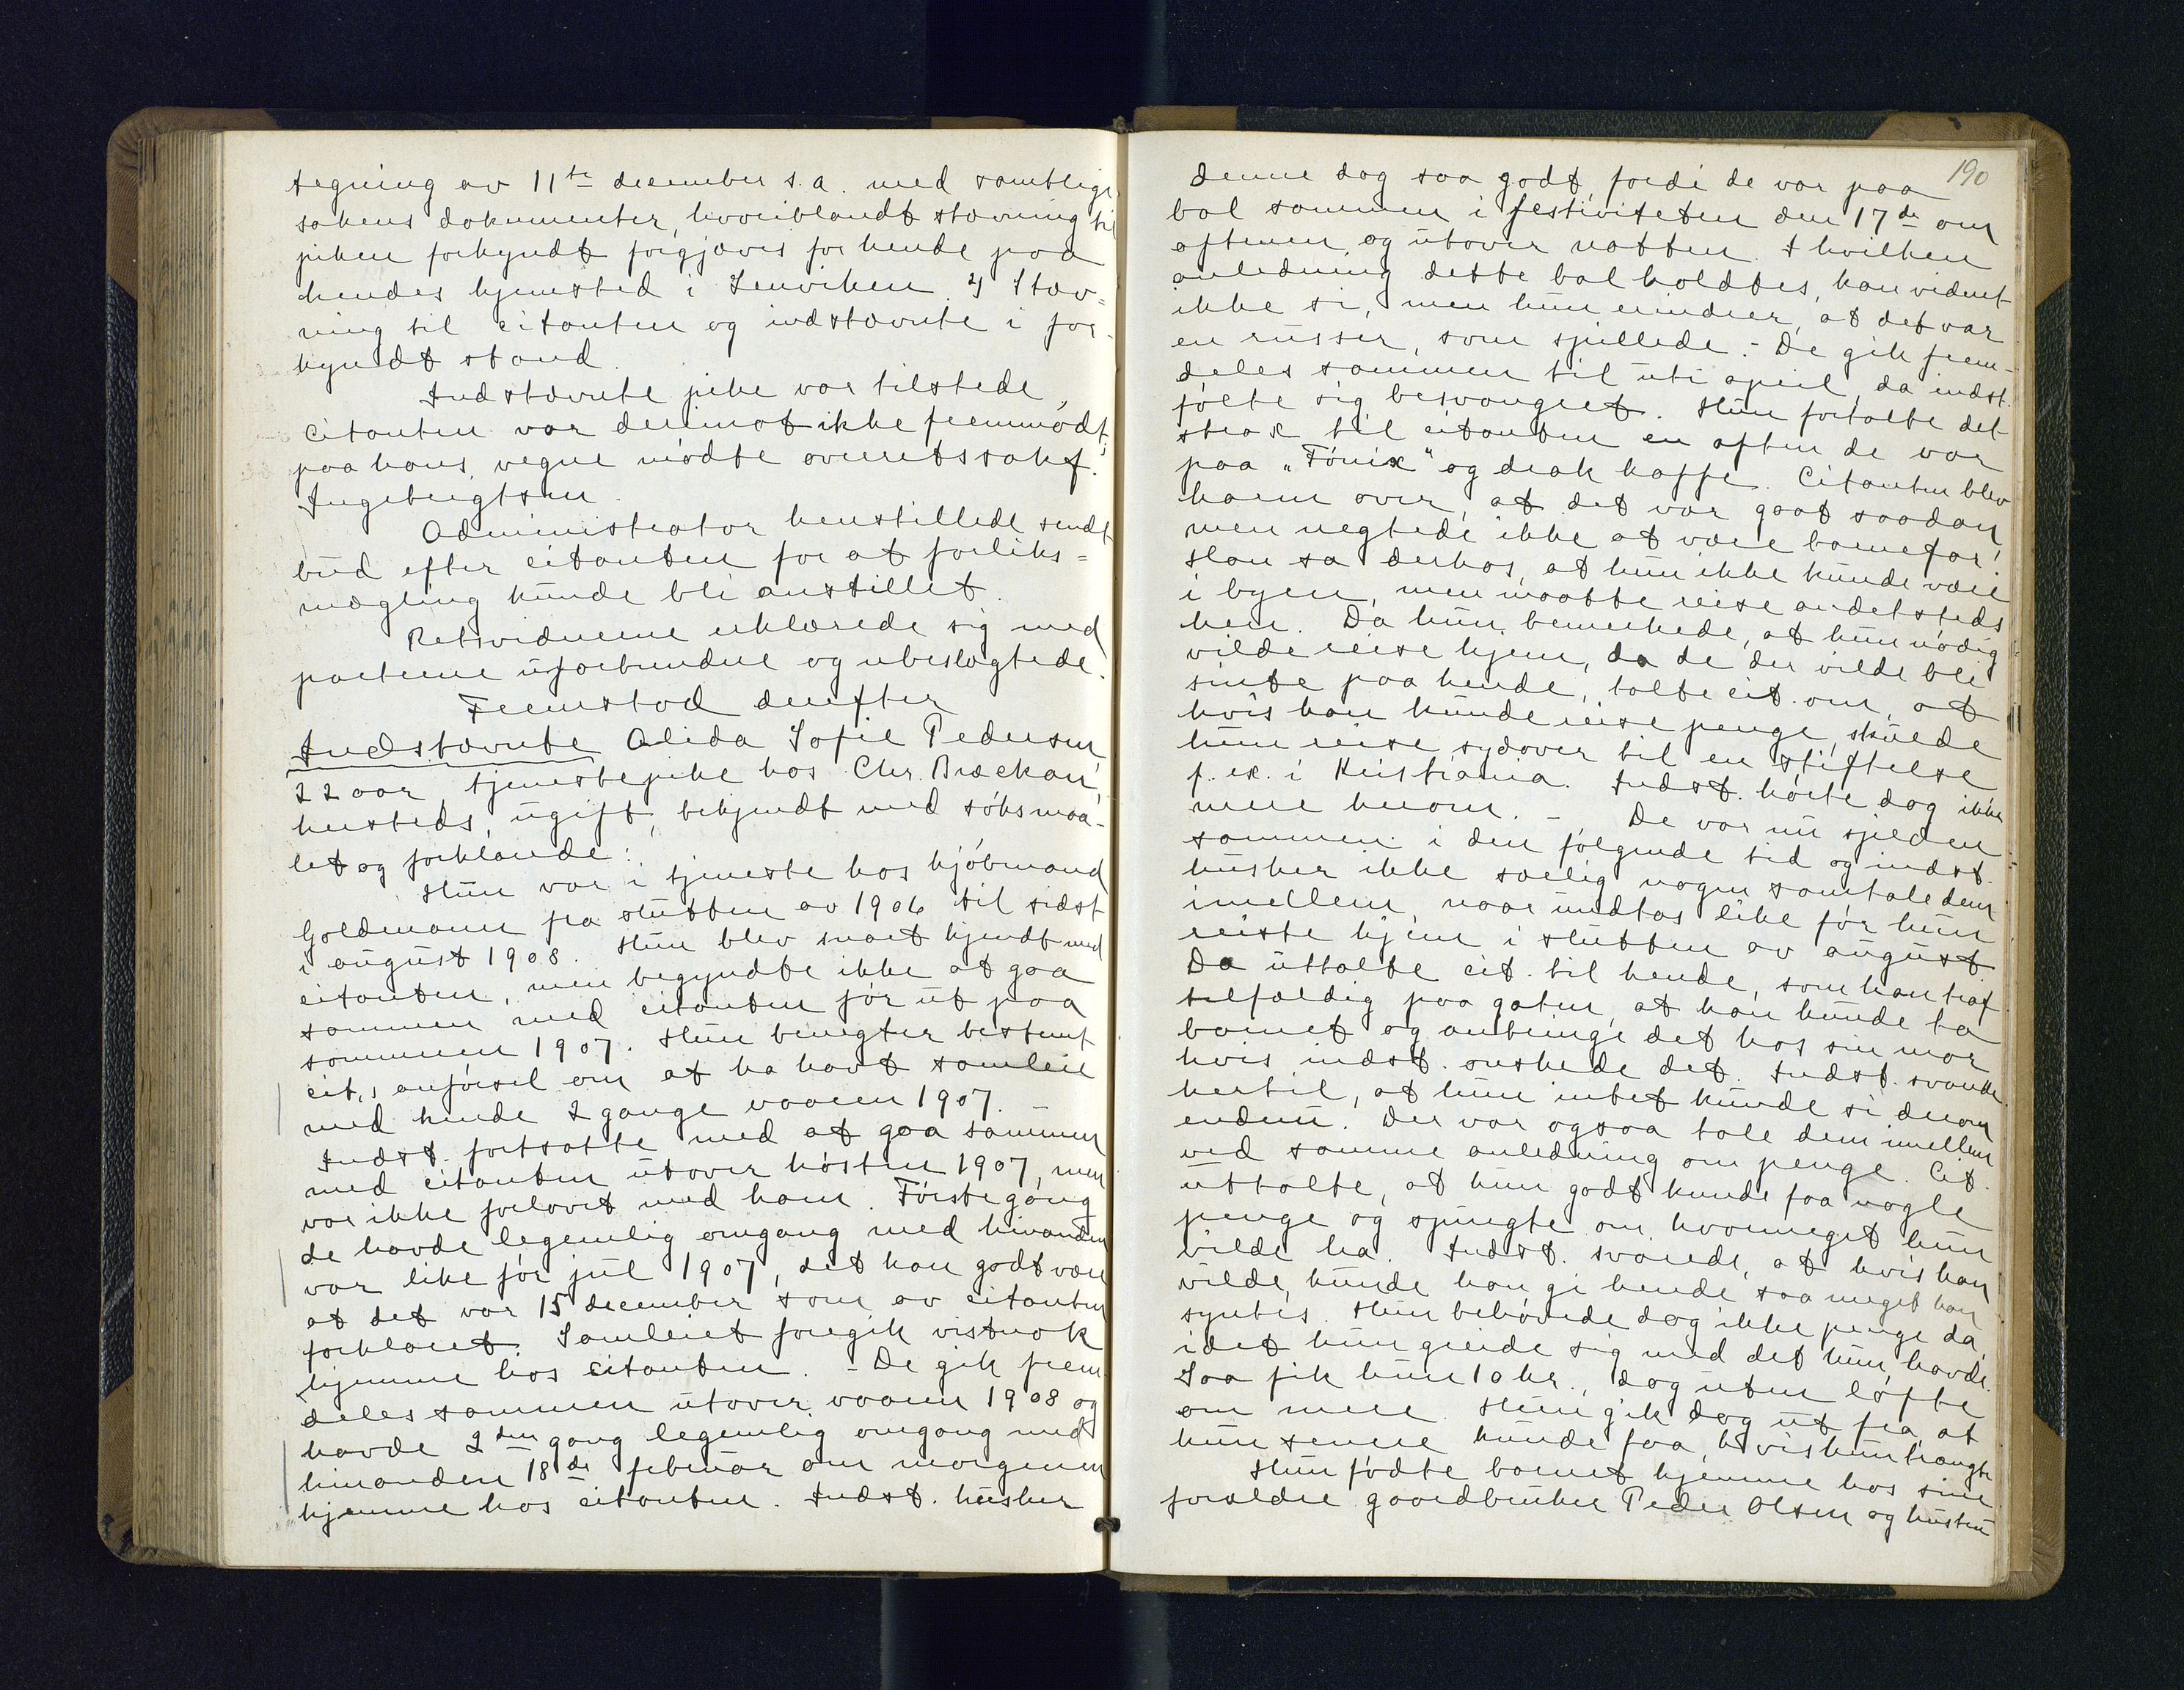 tegning av 11te december s.a. med samtlige
sakens dokumenter, hvoriblandt stævning til
piken forkyndt forgjæves for hende paa
hendes hjemsted i Lenviken. 4) Stæv-
ning til citanten og indstævnte i for-
kyndt stand.
Indstævnte pike var tilstede,
citanten var derimot ikke fremmødt,
paa hans vegne mødte overretssakf.
Ingebrigtsen.
Administrator henstillede sendt
bud efter citanten for at forliks-
mægling kunde bli anstillet.
Retsvidnerne erklærede sig med
parterne uforbundne og ubeslægtede.
Fremstod derefter
Indstævnte Alida Sofie Pedersen,
22 aar, tjenestepike hos Chr. Drecker,
hersteds, ugift, bekjendt med søksmaa-
let og forklarede:
Hun var i tjeneste hos kjøbmand
Goldmann fra slutten av 1906 til sidst
i august 1908. Hun blev snart kjendt med
citanten, men begyndte ikke at gaa
sammen med citanten før ut paa
sommeren 1907. Hun benegter bestemt
cit.s anførsel om at ha havt samleie
med hende 2 gange vaaren 1907.
Indst. fortsatte med at gaa sammen
med citanten utover høsten 1907, men
var ikke forlovet med ham. Første gang
de havde legemlig omgang med hinanden
var like før jul 1907, det kan godt være
at det var 15 december som av citanten
forklaret. Samleiet foregik vistnok
hjemme hos citanten. - De gik frem-
deles sammen utover vaaren 1908 og
havde 2den gang legemlig omgang med
hinanden 18de februar om morgenen
hjemme hos citanten. Indst. husker
190
denne dag saa godt, fordi de var paa
bal sammen i festiviteten den 17de om
aftenen og utover natten. I hvilken
anledning dette bal holdtes, kan vidnet
ikke si, men hun erindrer, at det var
en russer, som spillede. - De gik frem-
deles sammen til uti april, da indst.
følte sig besvangret. Hun fortalte det
strax til citanten en aften de var
paa „Fønix" og drak kaffe. Citanten blev
harm over, at det var gaat saadan
men negtede ikke at være barnefar.
Han sa derhos, at hun ikke kunde være
i byen, men maatte reise andetsteds
hen. Da hun bemerkede, at hun nødig
vilde reise hjem, da de der vilde bli
sinte paa hende, talte cit. om, at
hvis han kunde reise penge, skulde
hun reise sydover til en stiftelse
f. ex. i Kristiania. Indst. hørte dog ikke
mere herom. - De var nu sjelden
sammen i den følgende tid og indst.
husker ikke særlig nogen samtale dem
imellem, naar undtas like før hun
reiste hjem i slutten av august.
Da uttalte cit. til hende, som han traf
tilfældig paa gaten, at han kunde ta
barnet og anbringe det hos sin mor
hvis indst. ønskede det. Indst. svarte
hertil, at hun intet kunde si derom
endnu. Der var ogsaa tale dem imellem
ved samme anledning om penge. Cit.
uttalte, at hun godt kunde faa nogle
penge og spurgte om hvormeget hun
vilde ha. Indst. svarede, at hvis han
vilde, kunde han gi hende saa meget han
syntes. Hun behøvede dog ikke penge da,
idet hun greide sig med det hun havde.
Saa fik hun 10 kr., dog uten løfte
om mere. Hun gik dog ut fra, at
hun senere kunde faa, hvis hun trængte
Hun fødte barnet hjemme hos sine
forældre gaardbruker Peder Olsen og hustru